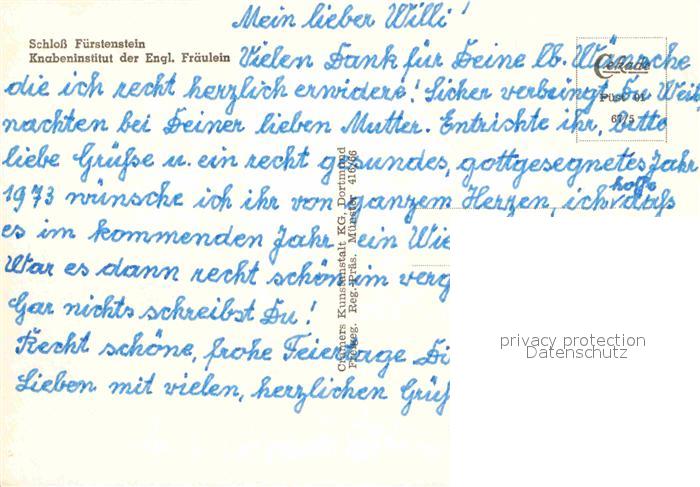 Mein lieber Willi!
Schloß Fürstenstein
Knabeninstitut der Engl. Fräulein
Vielen Dank für Deine lb. Wünsche
die ich recht herzlich erwidere! Sicher verbringst Du Weih
nachten bei Deiner lieben Mutter. Entrichte ihr, bitte
liebe Grüße u. ein recht gesundes, gottgesegnetes Jahr
1973 wünsche ich ihr von ganzem Herzen, ich hoffe daß
es im kommenden Jahr ein Wie
War es dann recht schön im verg
Gar nichts schreibst Du!
Recht schöne, frohe Feiertage Di
Lieben mit vielen, herzlichen Grüß
Cekade
Püst 01
67/5
Cramers Kunstanstalt KG, Dortmund
Freigeg. Reg.-Präs. Münster 416/66
privacy protection
Datenschutz